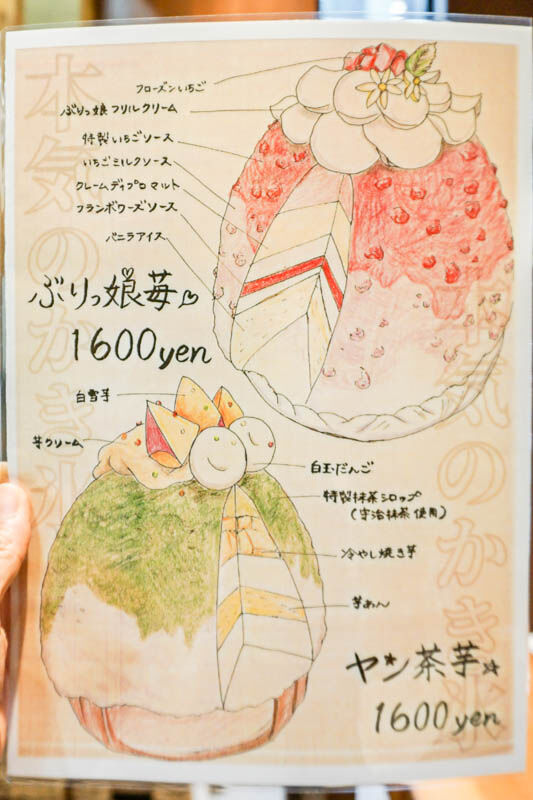 本気のかき氷
フローズンいちご
ぶりっ娘フリルクリーム
特製いちごソース
いちごミルクソース
クレームディプロマルト
フランボワーズソース
バニラアイス
ぶりっ娘苺♡
1600yen
本気のかき氷
白雪芋
芋クリーム
白玉だんご
特製抹茶シロップ
(宇治抹茶使用)
冷やし焼き芋
芋あん
ヤン茶芋☆
1600yen